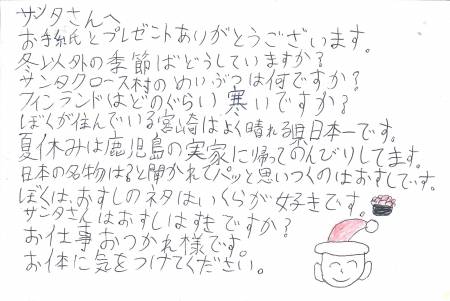 サンタさんへ
お手紙とプレゼントありがとうございます。
冬以外の季節はどうしていますか？
サンタクロース村のめいぶつは何ですか？
フィンランドはどのぐらい寒いですか？
ぼくが住んでいる宮崎はよく晴れる県日本一です。
夏休みは鹿児島の実家に帰ってのんびりしてます。
日本の名物は？と聞かれてパッと思いつくのはおすしです。
ぼくは、おすしのネタはいくらが好きです。
サンタさんはおすしはすきですか？
お仕事おつかれ様です。
お体に気をつけてください。